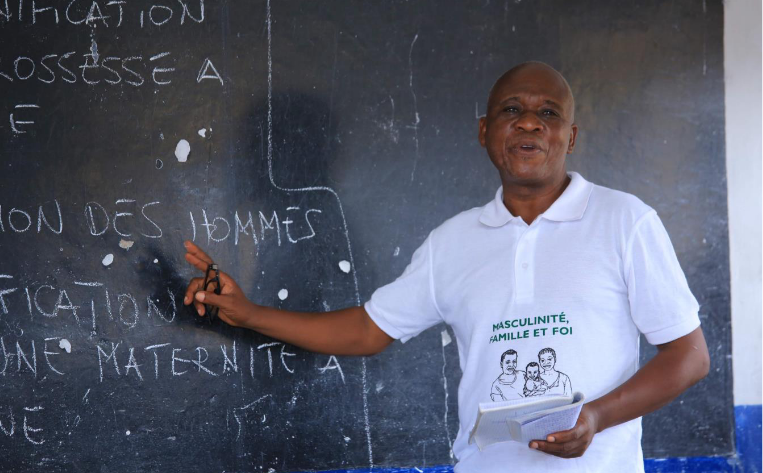 NIFICATION
ROSSESSE A
E
ION DES HOMMES
IFICATION
UNE MATERNITE A
NE
MASCULINITÉ,
FAMILLE ET FOI